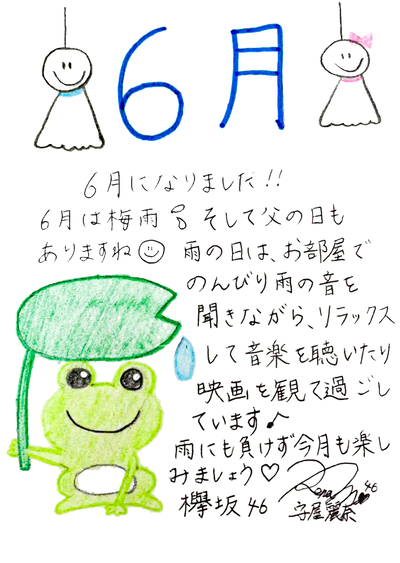 6月
6月になりました!!
6月は梅雨 そして父の日も
ありますね 雨の日は、お部屋で
のんびり雨の音を
聞きながら、リラックス
して音楽を聴いたり
映画を観て過ごし
ています♪
雨にも負けず今月も楽し
みましょう♡
欅坂46
Rena 46
守屋麗奈